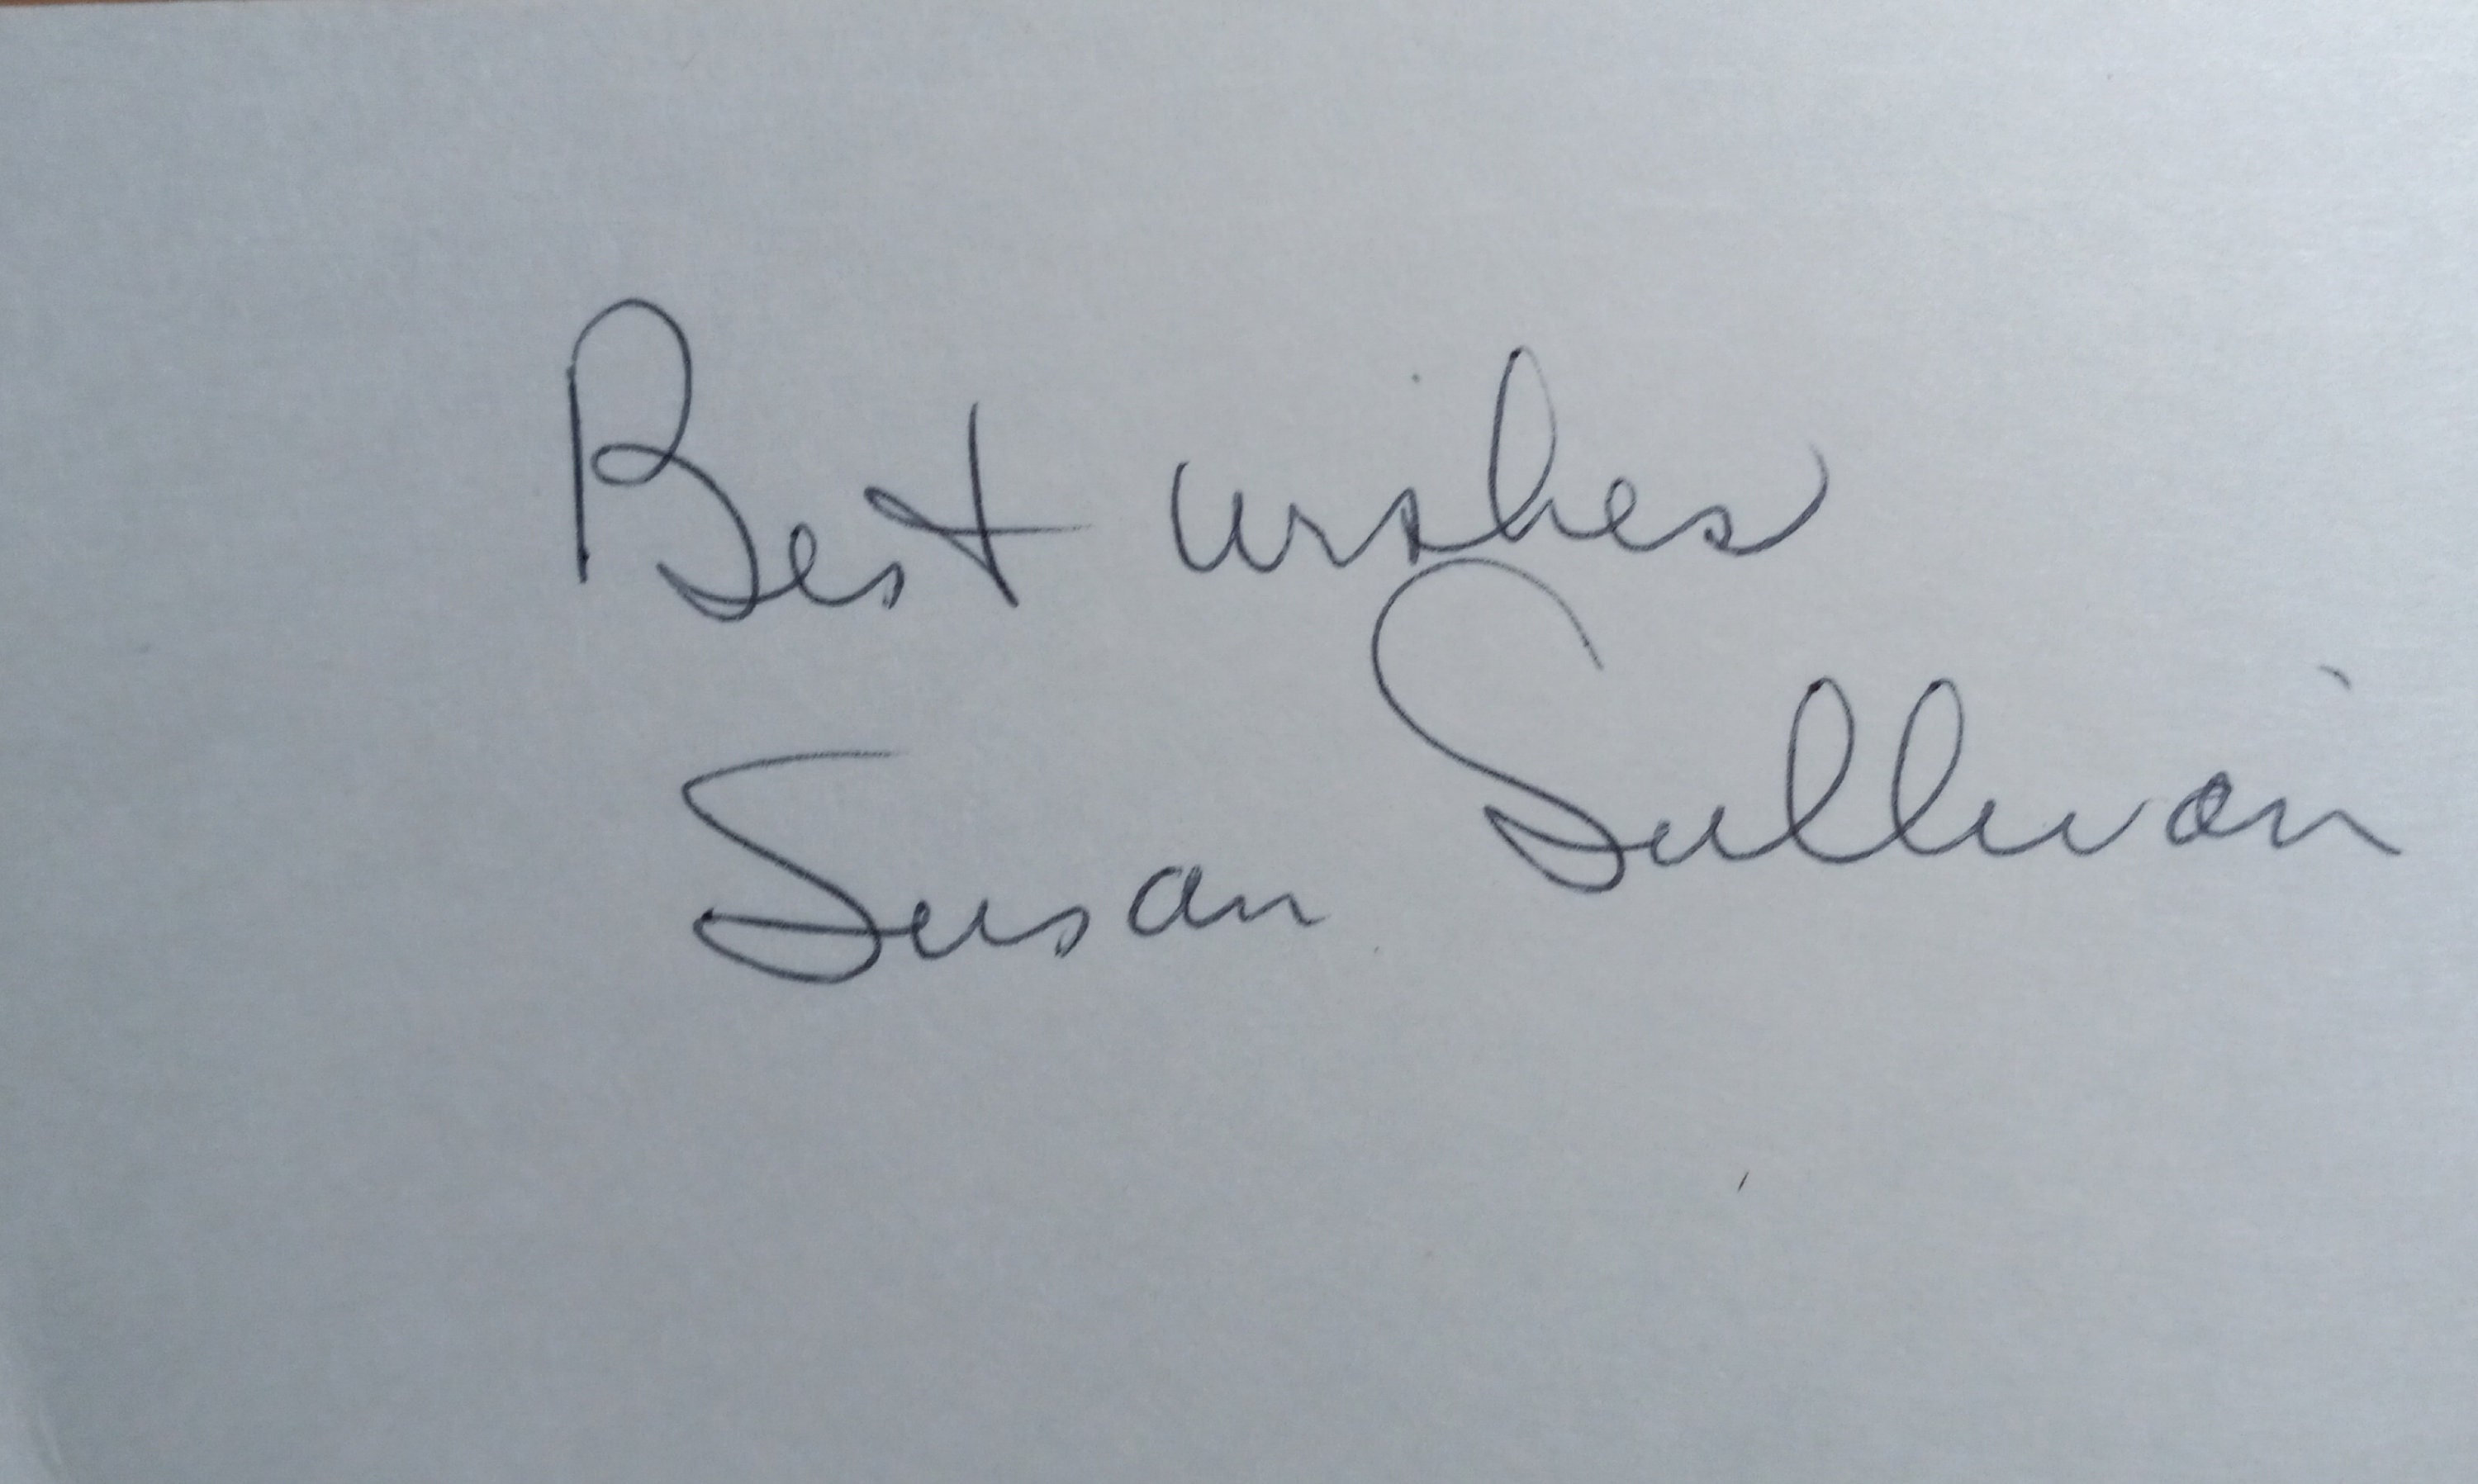 Best wishes
Susan Sullivan